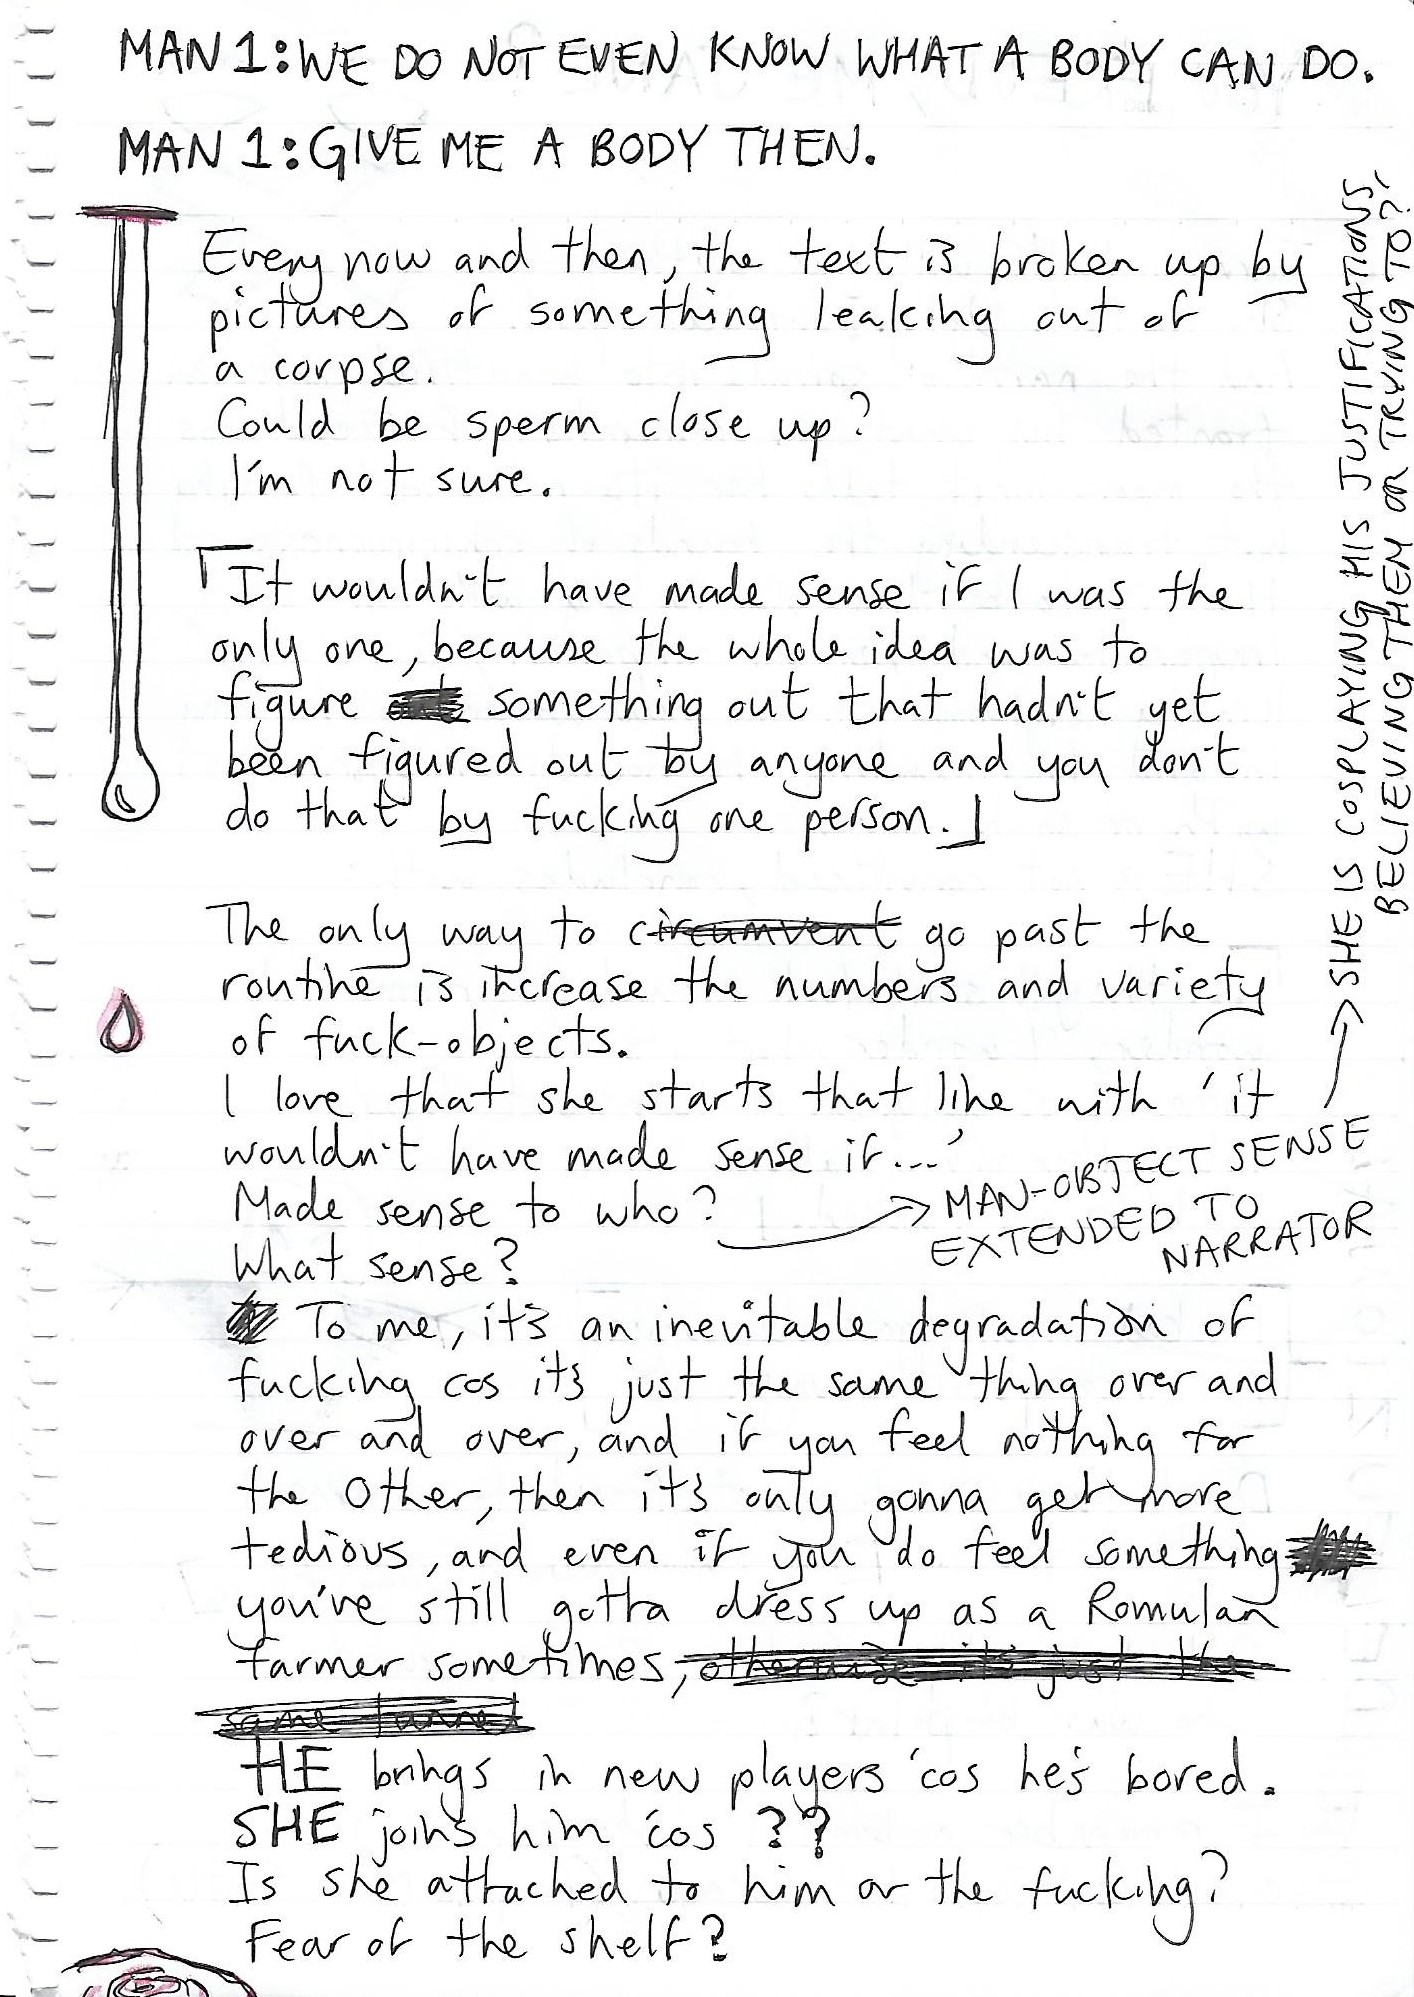 MAN 1: WE DO NOT EVEN KNOW WHAT A BODY CAN DO.
MAN 1: GIVE ME A BODY THEN.
Every now and then, the text is broken up by
pictures of something leaking out of
a corpse.
Could be sperm close up?
I'm not sure.
「It wouldn't have made sense if I was the
only one, because the whole idea was to
figure something out that hadn't yet
been figured out by anyone and you don't
do that by fucking one person.」
The only way to circumvent go past the
routine is increase the numbers and variety
of fuck-objects.
I love that she starts that line with 'it
wouldn't have made sense if...'
Made sense to who?
What sense?
→ MAN-OBJECT SENSE
EXTENDED TO
NARRATOR
→ SHE IS COSPLAYING HIS JUSTIFICATIONS,
BELIEVING THEM OR TRYING TO?
To me, it's an inevitable degradation of
fucking cos it's just the same thing over and
over and over, and if you feel nothing for
the Other, then it's only gonna get more
tedious, and even if you do feel something
you've still gotta dress up as a Romulan
farmer sometimes, otherwise it's just the
same
HE brings in new players 'cos he's bored.
SHE joins him 'cos ??
Is she attached to him or the fucking?
Fear of the shelf?